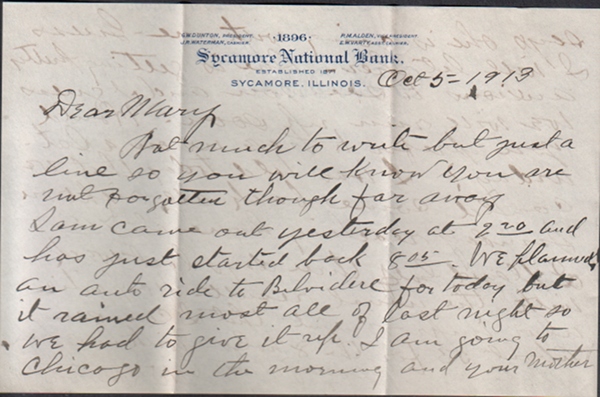 1896
G.W. DUNTON, PRESIDENT P.M. ALDEN, VICE PRESIDENT
J.P. WATERMAN, CASHIER.
Sycamore National Bank.
ESTABLISHED
SYCAMORE, ILLINOIS. Oct 5-1913
Dear Mary
Not much to write but just a
line so you will know you are
not forgotten though far away
Sam came out yesterday at 2 20 and
has just started back 8 05. We planned
an auto ride to Belvidere for today but
it rained most all of last night so
we had to give it up. I am going to
Chicago in the morning and your mother